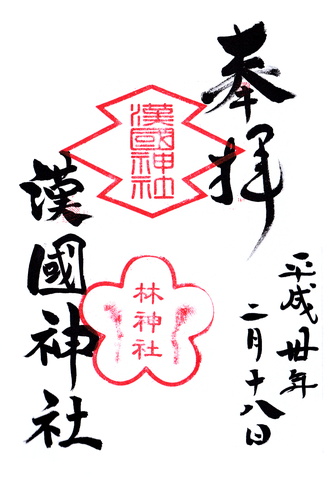 奉拝
平成廿年
二月十八日
漢國神社
林神社
漢國神社